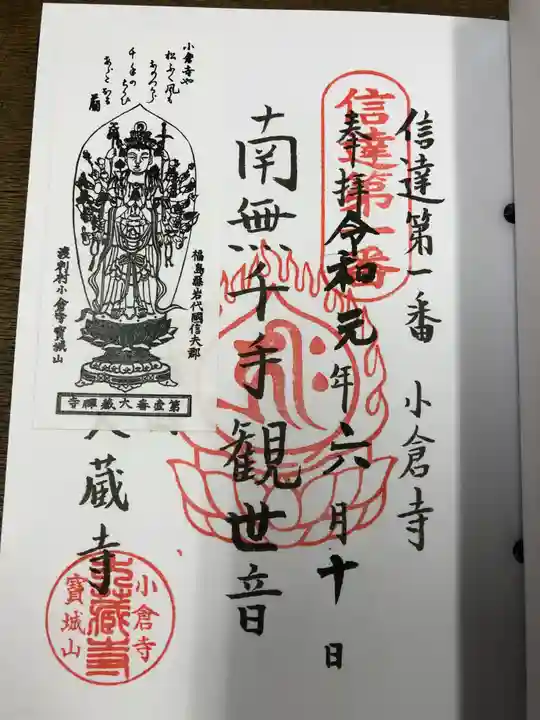 信達第一番 小倉寺
奉拝 令和元年六月十日
信達第一番
南無千手観世音
大蔵寺
小倉寺
大蔵寺
寶城山
小倉寺や
松ふく風も
千手の
福島縣岩代國信夫郡
渡利村小倉寺寶城山
第壹番大蔵禪寺